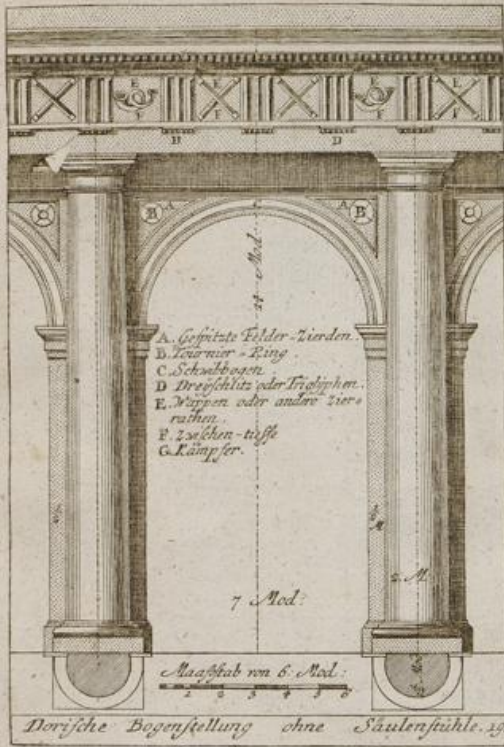 E E E E E
F F F F F
B D
C B A C A B C
14 Mod.
A. Gespitzte Felder-Zierden.
B. Tournier-Ring.
C. Schwibbogen.
D Dreyschlitz oder Triglyphen.
E. Wappen oder andere Zier=
rathen.
F. Zwischen-tieffe
G. Kämpfer.
½
½
M
2. M.
7 Mod:
Maaßstab von 6. Mod:
1 2 3 4 5 6
Dorische Bogenstellung ohne Säulenstühle. 19